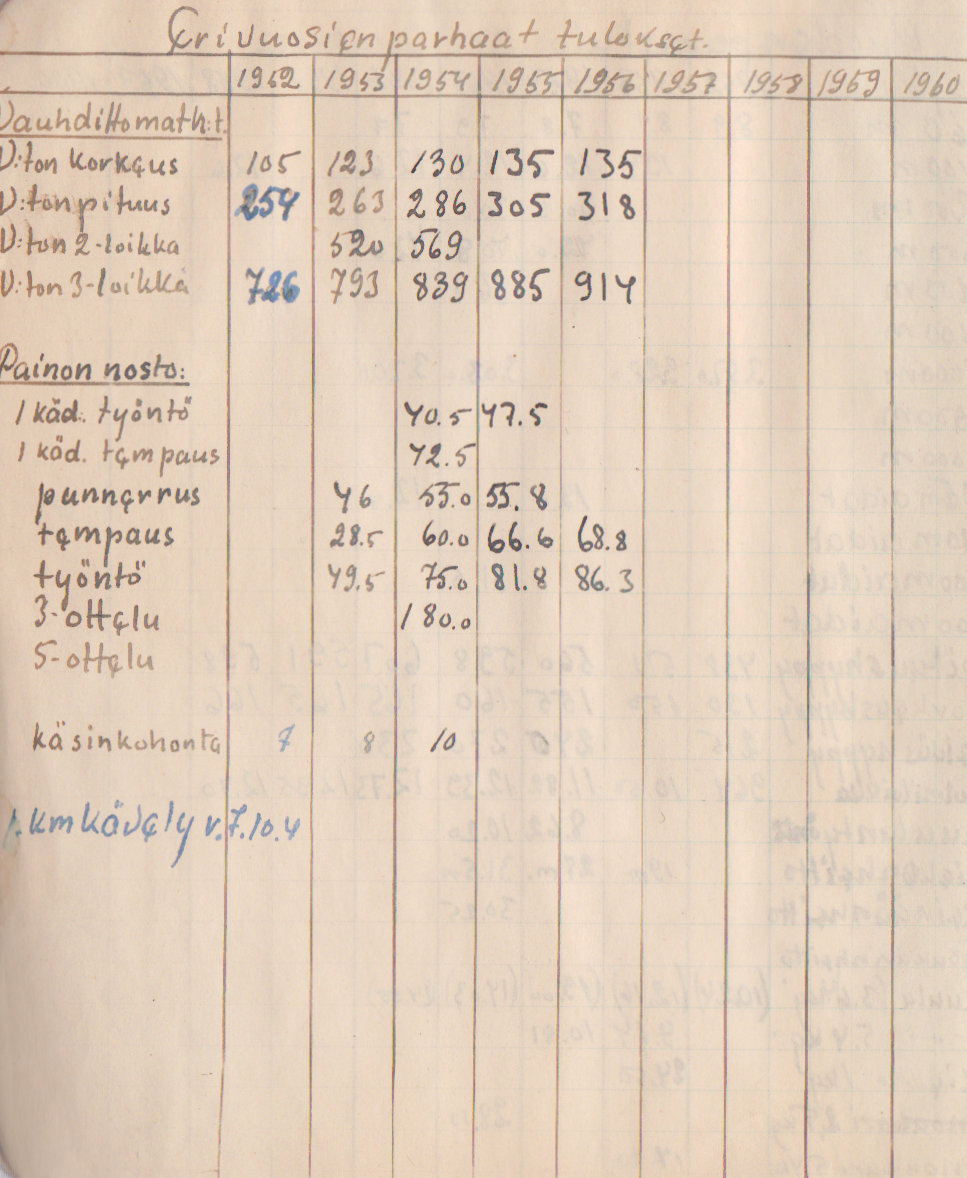 Eri vuosien parhaat tulokset.
1952 1953 1954 1955 1956 1957 1958 1959 1960
Vauhdittomat h:t.
V:ton korkeus 105 123 130 135 135
V:ton pituus 254 263 286 305 318
V:ton 2-loikka 520 569
V:ton 3-loikka 726 793 839 885 914
Painon nosto:
1 käd. työntö 40.5 47.5
1 käd. tempaus 42.5
punnerrus 46 55.0 55.8
tempaus 28.5 60.0 66.6 68.8
työntö 49.5 75.0 81.8 86.3
3-ottelu 180.0
5-ottelu
käsinkohonta 7 8 10
1. km kävely v. 7.10.4